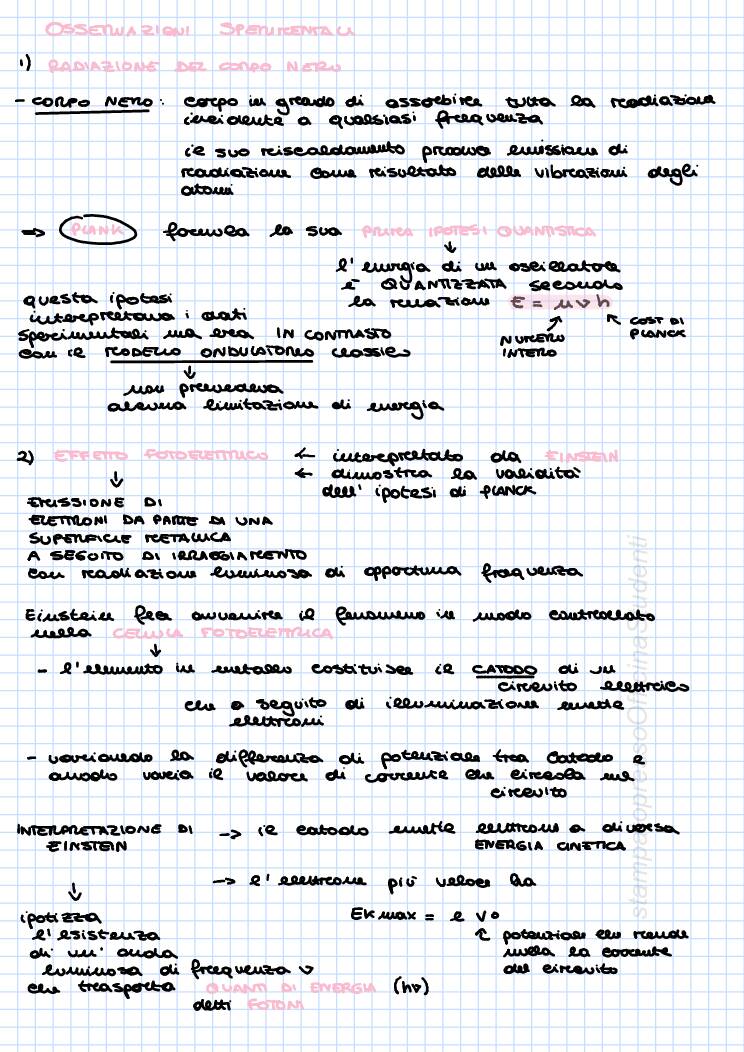 OSSERVAZIONI SPERIMENTALI
1) RADIAZIONE DEL CORPO NERO
- CORPO NERO: corpo in grado di assorbire tutta la radiazione
incidente a qualsiasi frequenza
il suo riscaldamento provoca emissione di
radiazione come risultato delle vibrazioni degli
atomi
⇒ PLANK formula la sua PRIMA IPOTESI QUANTISTICA
↓
l'energia di un oscillatore
è QUANTIZZATA secondo
la relazione E = nνh
NUMERO INTERO
COST DI PLANCK
questa ipotesi
interpretava i dati
sperimentali ma era IN CONTRASTO
con il MODELLO ONDULATORIO classico
↓
non prevedeva
alcuna limitazione di energia
2) EFFETTO FOTOELETTRICO ← interpretato da EINSTEIN
← dimostra la validità
dell'ipotesi di PLANCK
↓
EMISSIONE DI
ELETTRONI DA PARTE DI UNA
SUPERFICIE METALLICA
A SEGUITO DI IRRAGGIAMENTO
con radiazione luminosa di opportuna frequenza
Einstein fece avvenire il fenomeno in modo controllato
nella CELLULA FOTOELETTRICA
↓
- l'elemento in metallo costituisce il CATODO di un
circuito elettrico
che a seguito di illuminazione emette
elettroni
- variando la differenza di potenziale tra catodo e
anodo varia il valore di corrente che circola nel
circuito
INTERPRETAZIONE DI
EINSTEIN
-> il catodo emette elettroni a diversa
ENERGIA CINETICA
-> l'elettrone più veloce ha
EK max = e V°
potenziale che rende
nulla la corrente
del circuito
↓
ipotizza
l'esistenza
di un'onda
luminosa di frequenza ν
che trasporta QUANTI DI ENERGIA (hν)
detti FOTONI
stampato presso Officina Studenti